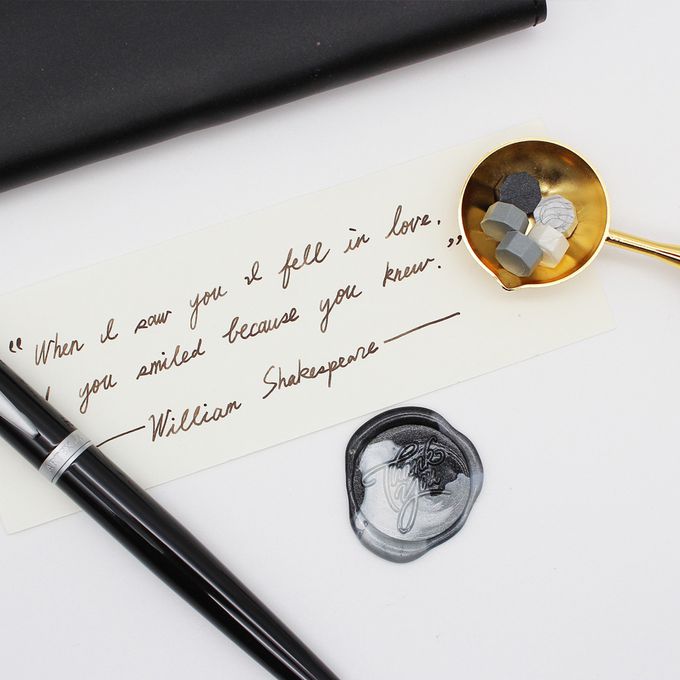 “When I saw you I fell in love.
you smiled because you knew.”
—William Shakespeare—
Thank
you